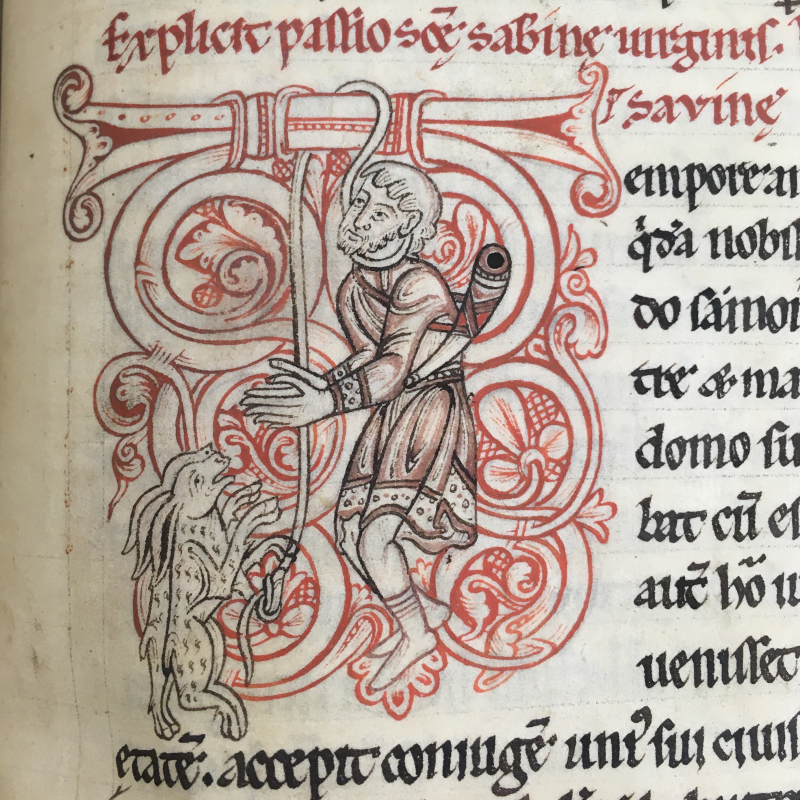 Explicit passio scẽ sabinę uirginis.
savinę
empore an
qda nobil
do samoi
tre & ma
domo su
bat cũ es
aut̃ hõ u
uenisset
etatẽ. accepit coniugẽ uni' sui ciuis